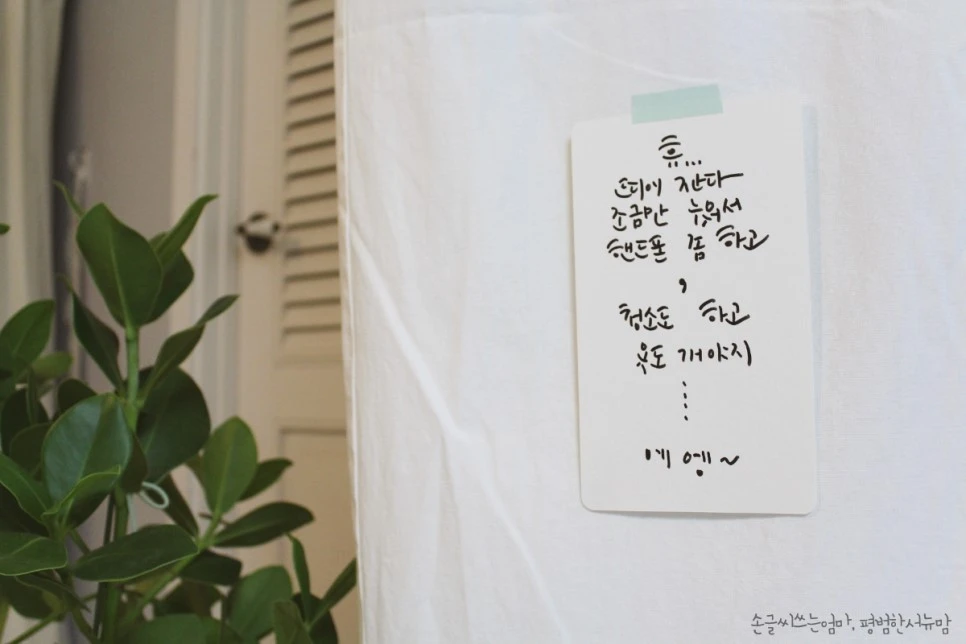 휴...
드디어 잔다
조금만 누워서
핸드폰 좀 하고
,
청소도 하고
옷도 개야지
⋮
에 엥~
손글씨쓰는엄마. 평범한서뉴맘